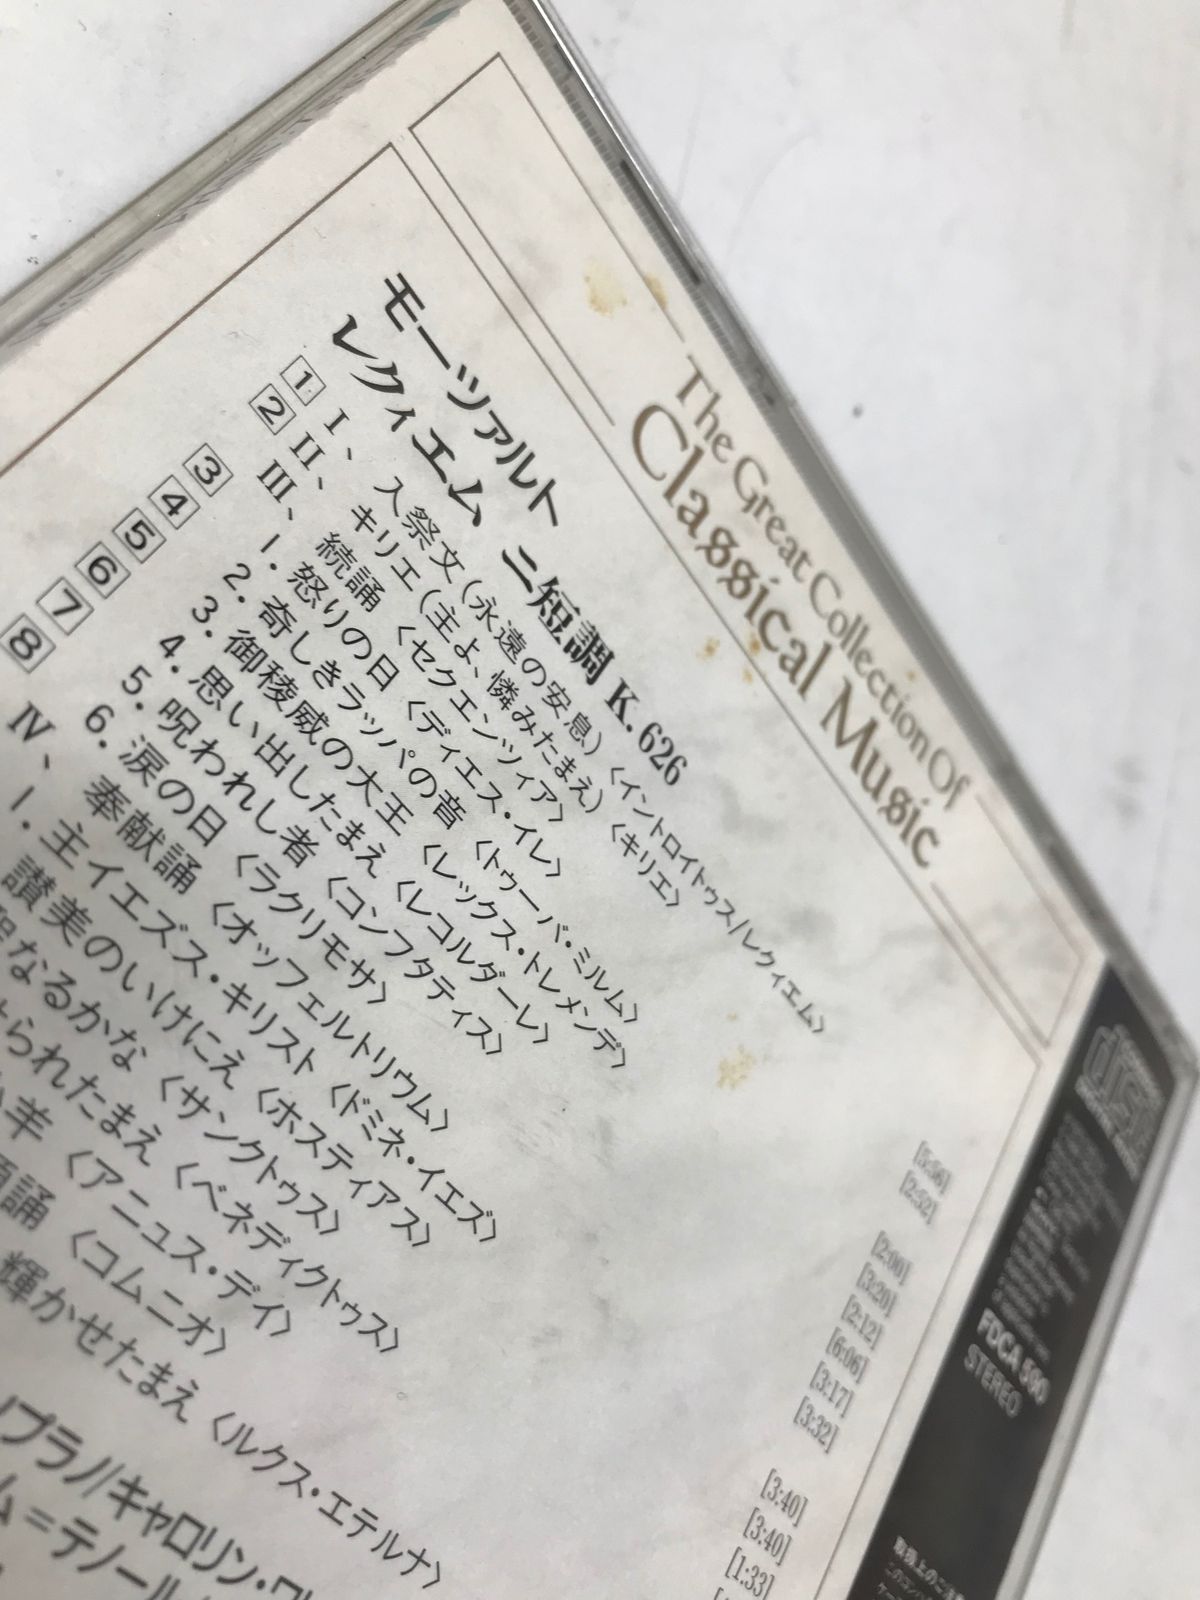 The Great Collection Of
Classical Music
モーツァルト
レクィエム ニ短調 K.626
1 I、入祭文(永遠の安息)〈イントロイトゥス/レクィエム〉 [5:56]
2 II、キリエ(主よ、憐みたまえ)〈キリエ〉 [2:52]
III、続誦〈セクエンツィア〉
3 1. 怒りの日〈ディエス・イレ〉 [2:00]
4 2. 奇しきラッパの音〈トゥーバ・ミルム〉 [3:20]
5 3. 御稜威の大王〈レックス・トレメンデ〉 [2:12]
6 4. 思い出したまえ〈レコルダーレ〉 [6:06]
7 5. 呪われし者〈コンフタティス〉 [3:17]
8 6. 涙の日〈ラクリモサ〉 [3:32]
IV、奉献誦〈オッフェルトリウム〉
1. 主イエズス・キリスト〈ドミネ・イエズ〉 [3:40]
讃美のいけにえ〈ホスティアス〉 [3:40]
なるかな〈サンクトゥス〉 [1:33]
られたまえ〈ベネディクトゥス〉
羊〈アニュス・デイ〉
誦〈コムニオ〉
輝かせたまえ〈ルクス・エテルナ〉
プラノ/キャロリン・ワ
ム=テノール
FDCA 500
STEREO